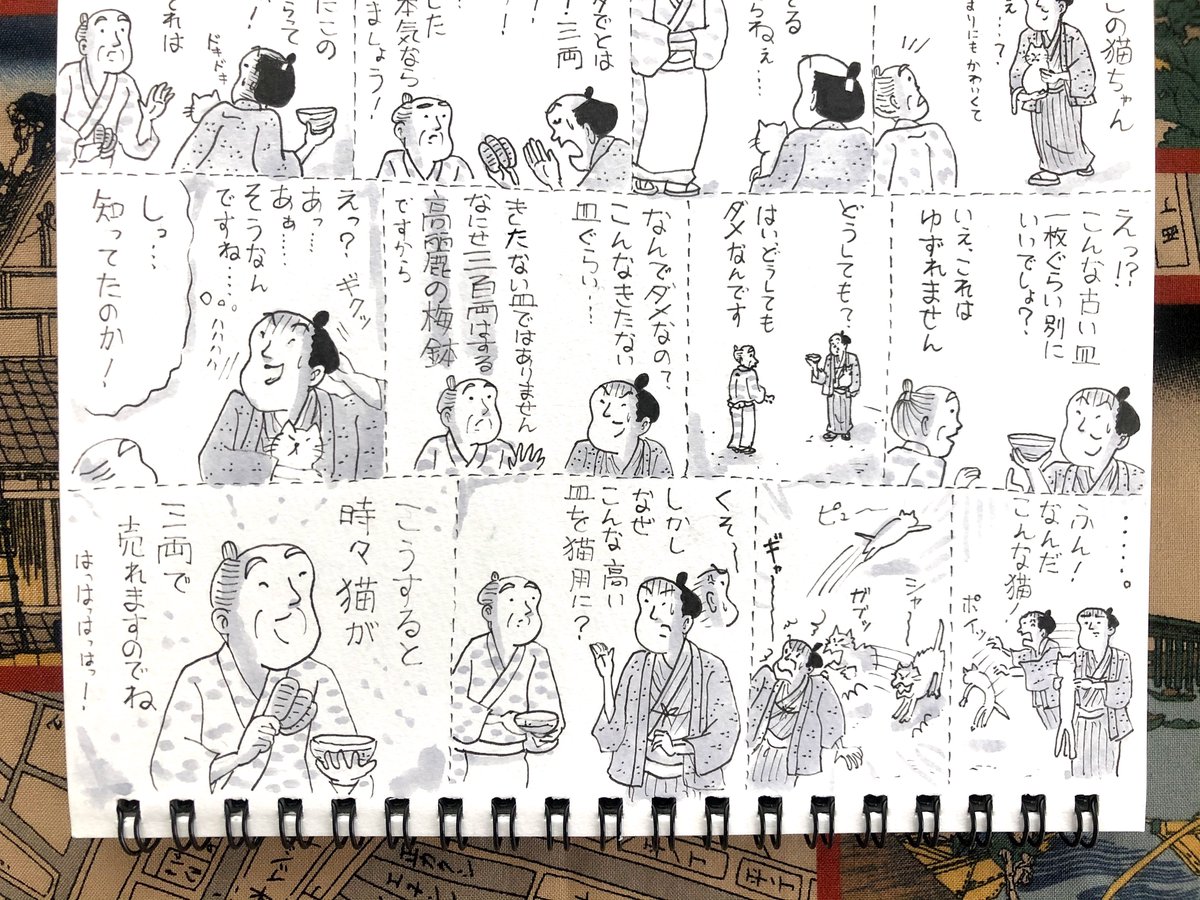 この猫ちゃん
ぇ…?
まりにもかわいくて
てる
らねぇ…
でとは
三両
!
した
本気なら
ましょう!
にこの
らって
!
ドキドキ
れは
えっ!?
こんな古い皿
一枚ぐらい別に
いいでしょ?
いえ、これは
ゆずれません
どうしても?
はいどうしても
ダメなんです
なんでダメなの?
こんなきたない
皿ぐらい…
きたない皿ではありません
なにせ三百両はする
高麗の梅鉢
ですから
えっ?
ギクッ
あっ…
あぁ…
そうなん
ですね…
しっ…
知ってたのか!
……。
ふん!
なんだ
こんな猫!
ポイッ
シャー
ピュー
ガブッ
ギャー
くそ〜
しかし
なぜ
こんな高い
皿を猫用に?
こうすると
時々猫が
三両で
売れますのでね
はっはっはっはっ!